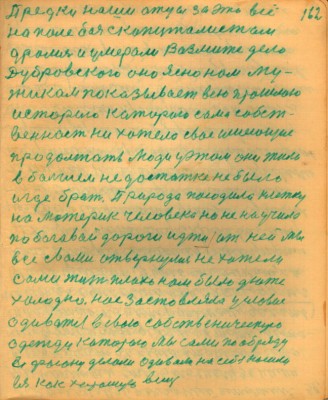 162
Предки наши отцы за это всё
на поле боя с капиталистам
дрались и умерали Возмите дело
Дубровского оно ясно нам му-
жикам показывает всю прошлую
историю каторого само собст-
венност ни хотело свае имеющие
продолжать Люди утом они жили
в балшем недостатке не было
игде брат. Природа породила клетку
на мотерик человека но не научила
по богавай дороги идти от ней мы
все сами отвернулис не хотели
сами жит плохо нам было даже
холодно, нас заставляла условие
одиват в свою собственическую
одежду каторою мы сами по обряду
делали одевали на себе нашли
ея как хорошую вещ